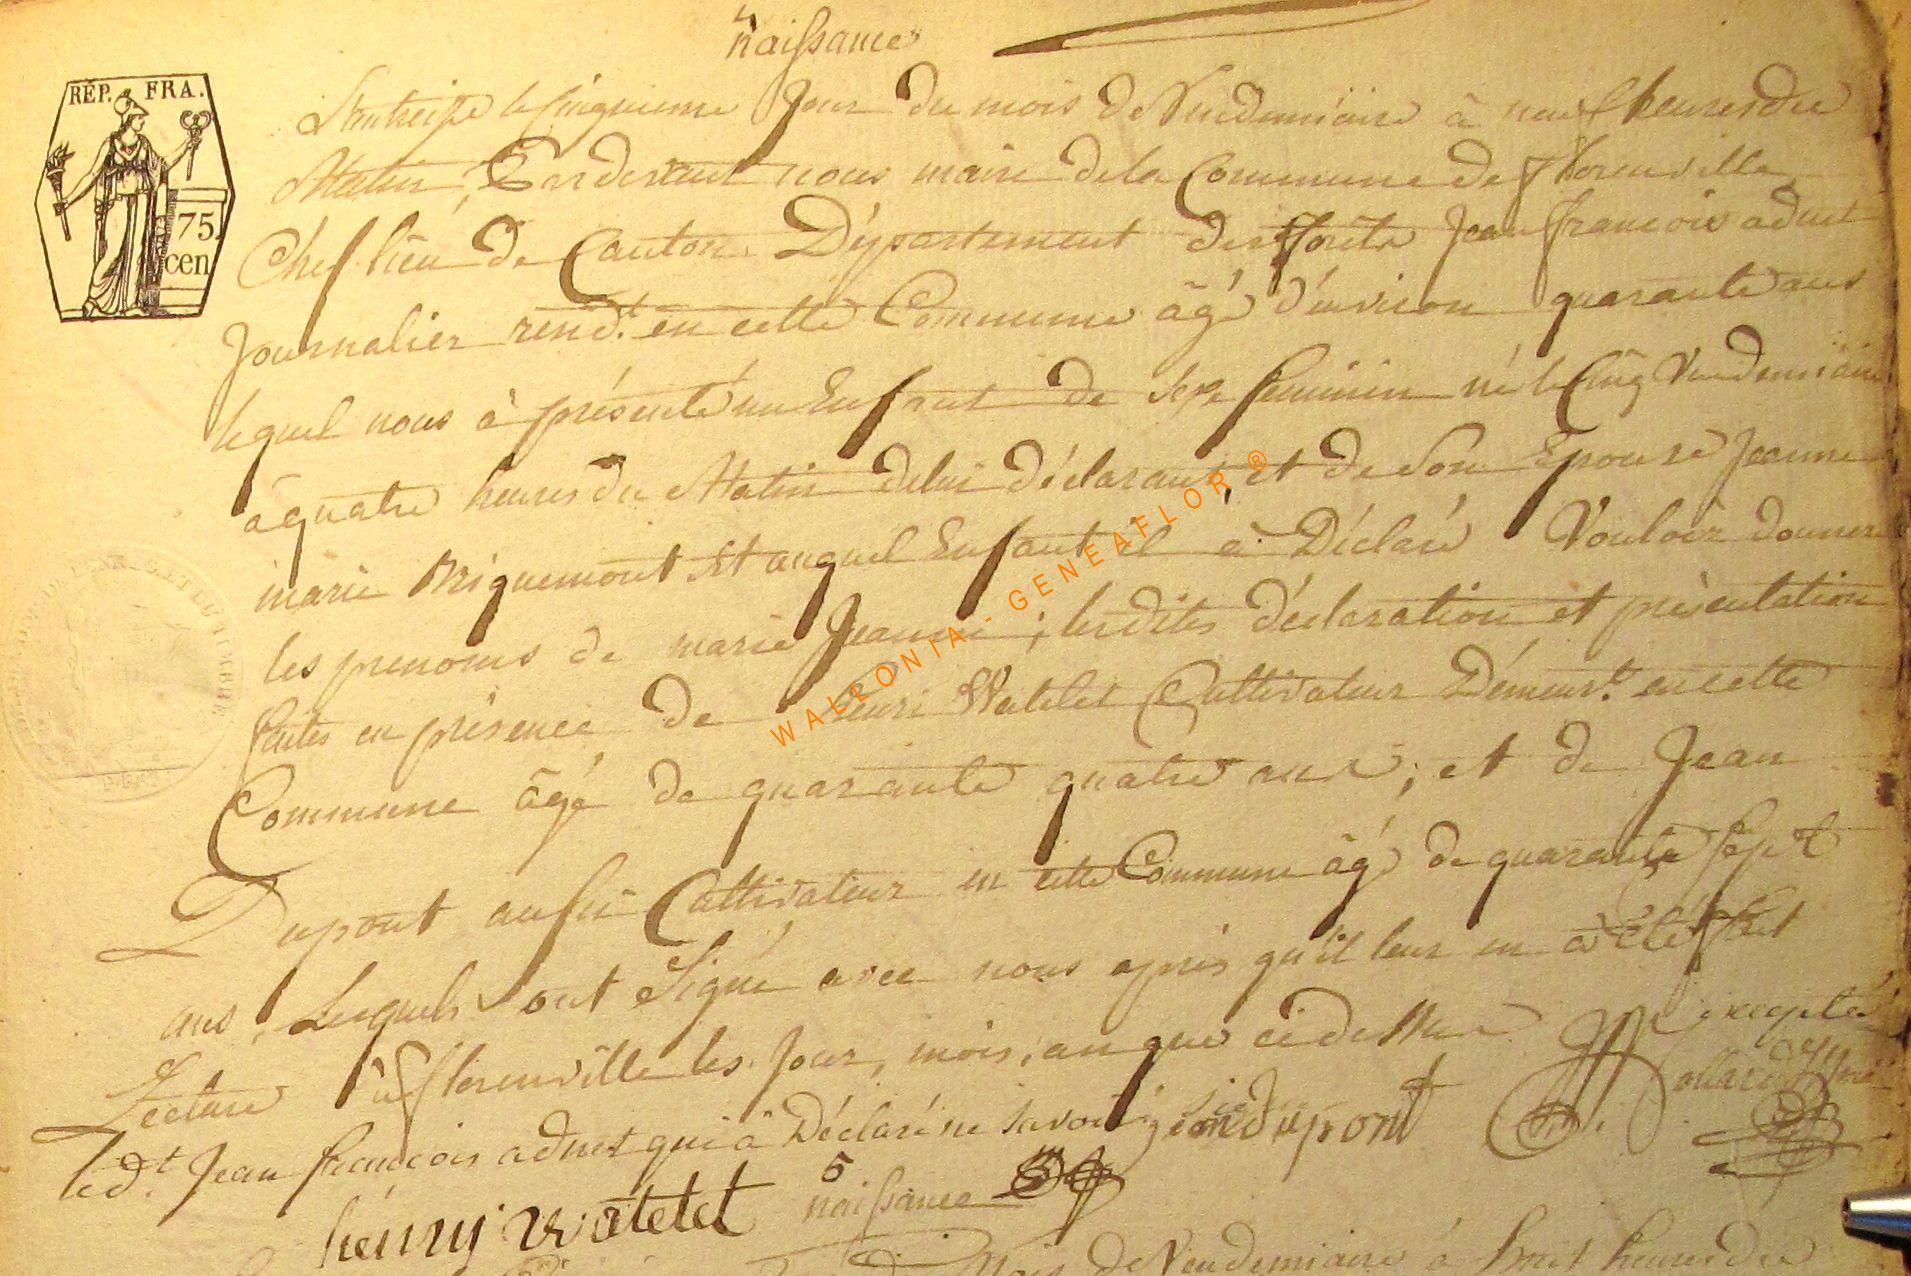 naissance
RÉP. FRA.
75
cen
L'an treize le cinquieme Jour du mois de Vendemiaire à neuf heures du
Matin, Pardevant nous maire de la Commune de Florenville
Chef lieu de Canton Département des Forêts Jean françois adnet
Journalier rend.t en cette Commune âgé d'environ quarante ans
lequel nous à présenté un Enfant de sexe feminin né le Cinq Vendemiaire
à quatre heures du Matin de lui déclarant, et de Son Epouse Jeanne
marie Briquemont Et auquel Enfant il à Déclaré Vouloir donner
les prenoms de marie Jeanne ; lesdites déclaration et présentation
faites en présence de henri Watelet Cultivateur Démeur.t en cette
Commune âgé de quarante quatre ans ; et de Jean
Dupont aussi Cultivateur en cette Commune âgé de quarante sept
ans, Lesquels ont Signé avec nous après qu'il leur en à été fait
Lecture à florenville les Jour, mois, an que ci dessus excepté
led.t Jean françois adnet qui à Déclaré ne savoir jean dupont
henry watelet
5
naissance
Mois de Vendemiaire à huit heures du
WALLONIA - GENEAFLOR ®